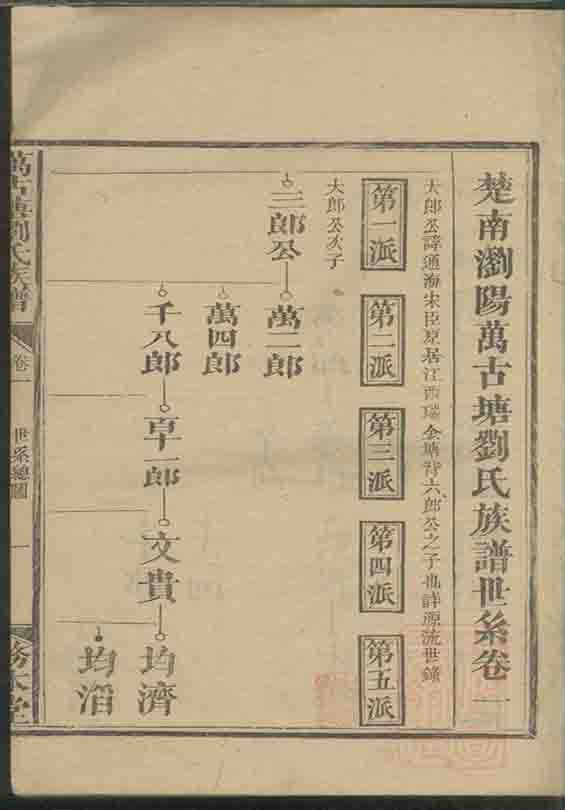 楚南瀏陽萬古塘劉氏族譜世系卷一
大郎公諱通海宋臣原居江西瑞金塘背六郎公之子也詳源流世錄
第一派
第二派
第三派
第四派
第五派
大郎公次子
三郎公
萬二郎
萬四郎
千八郎
百十一郎
文貴
均濟
均滔
萬古塘劉氏族譜
卷一
世系總圖
一
務本堂